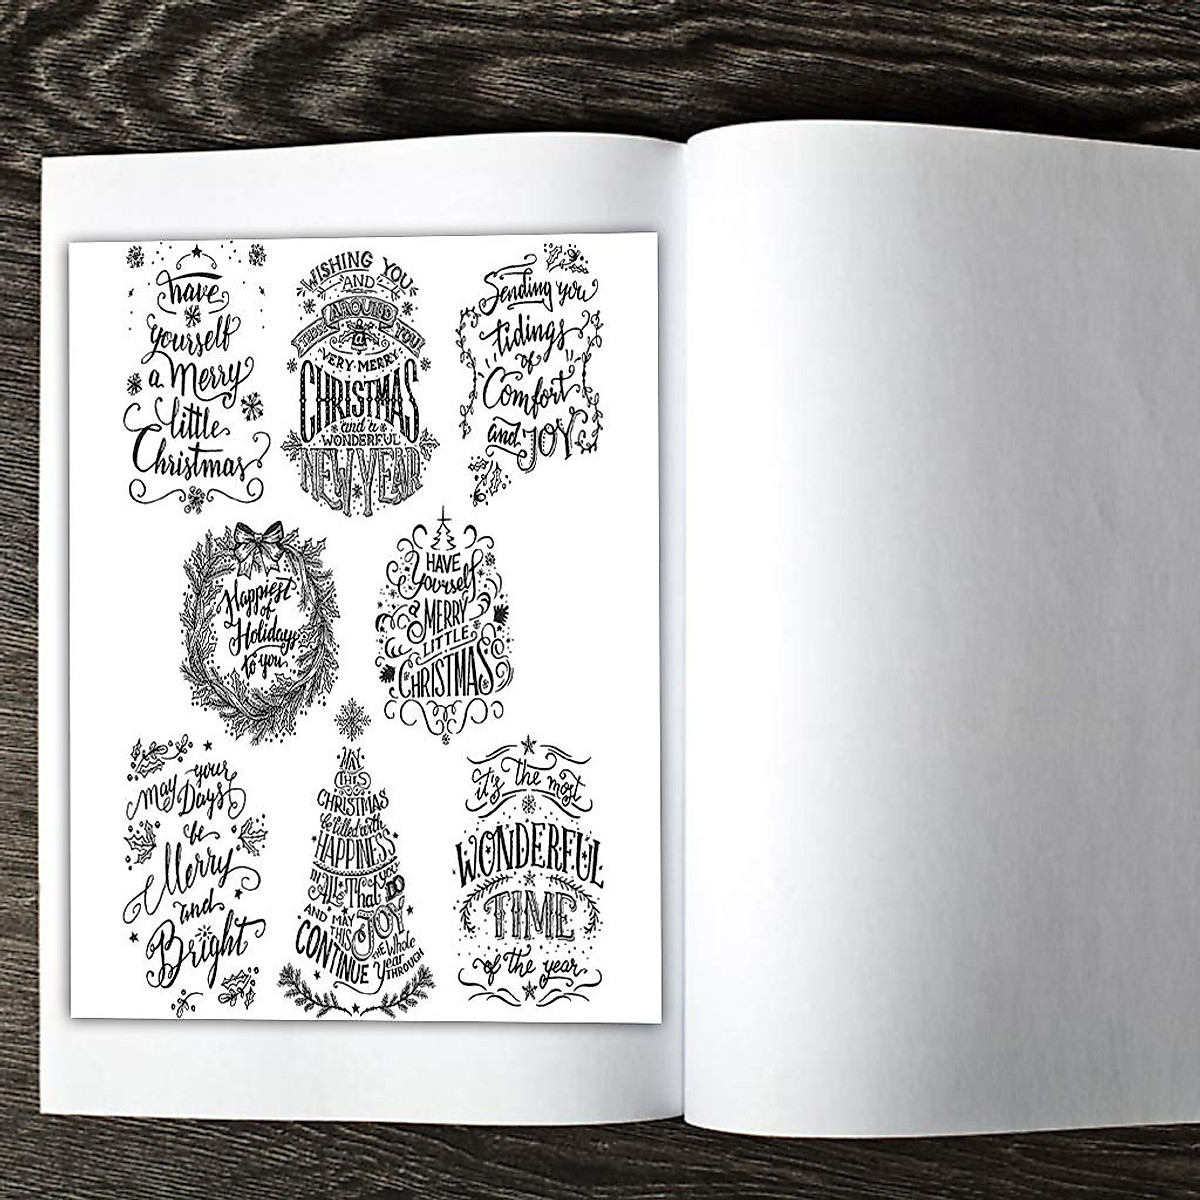 have
yourself
a Merry
little
Christmas
WISHING YOU
AND
THOSE AROUND YOU
a
VERY MERRY
CHRISTMAS
and a
WONDERFUL
NEW YEAR
Sending you
tidings
of
Comfort
and JOY
Happiest
of
Holidays
to you
HAVE
Yourself
a
MERRY
LITTLE
CHRISTMAS
may your
Days
be
Merry
and
Bright
MAY
THIS
CHRISTMAS
be filled with
HAPPINESS
IN
ALL That YOU DO
AND MAY
THIS JOY
CONTINUE
THE Whole
Year
THROUGH
it's the most
WONDERFUL
TIME
of the year